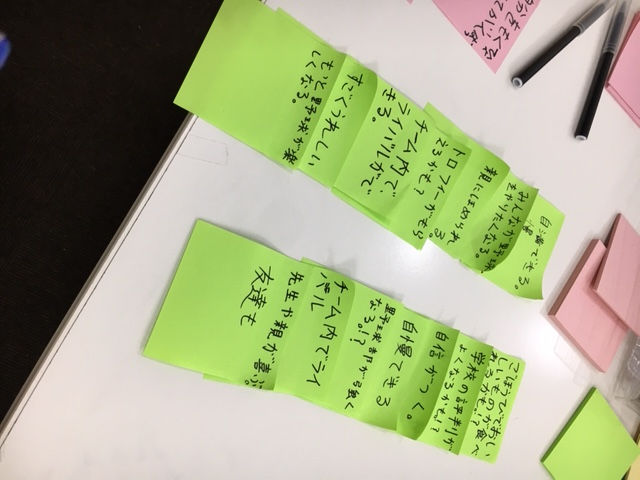 自慢できる。
みんなが野球
をやりたくなる。
親にほめられる
トロフィーがもら
えるかも?
チーム内で
ライバルがで
きる。
すごくうれしい
もっと野球が楽
しくなる。
ごほうびでおい
しいものが食べ
れるかも!?
学校の評判が
よくなるかも!?
自信がつく。
自慢できる
野球部が強く
なる。!?
チーム内でライ
バル
先生や親が喜ぶ。
友達も